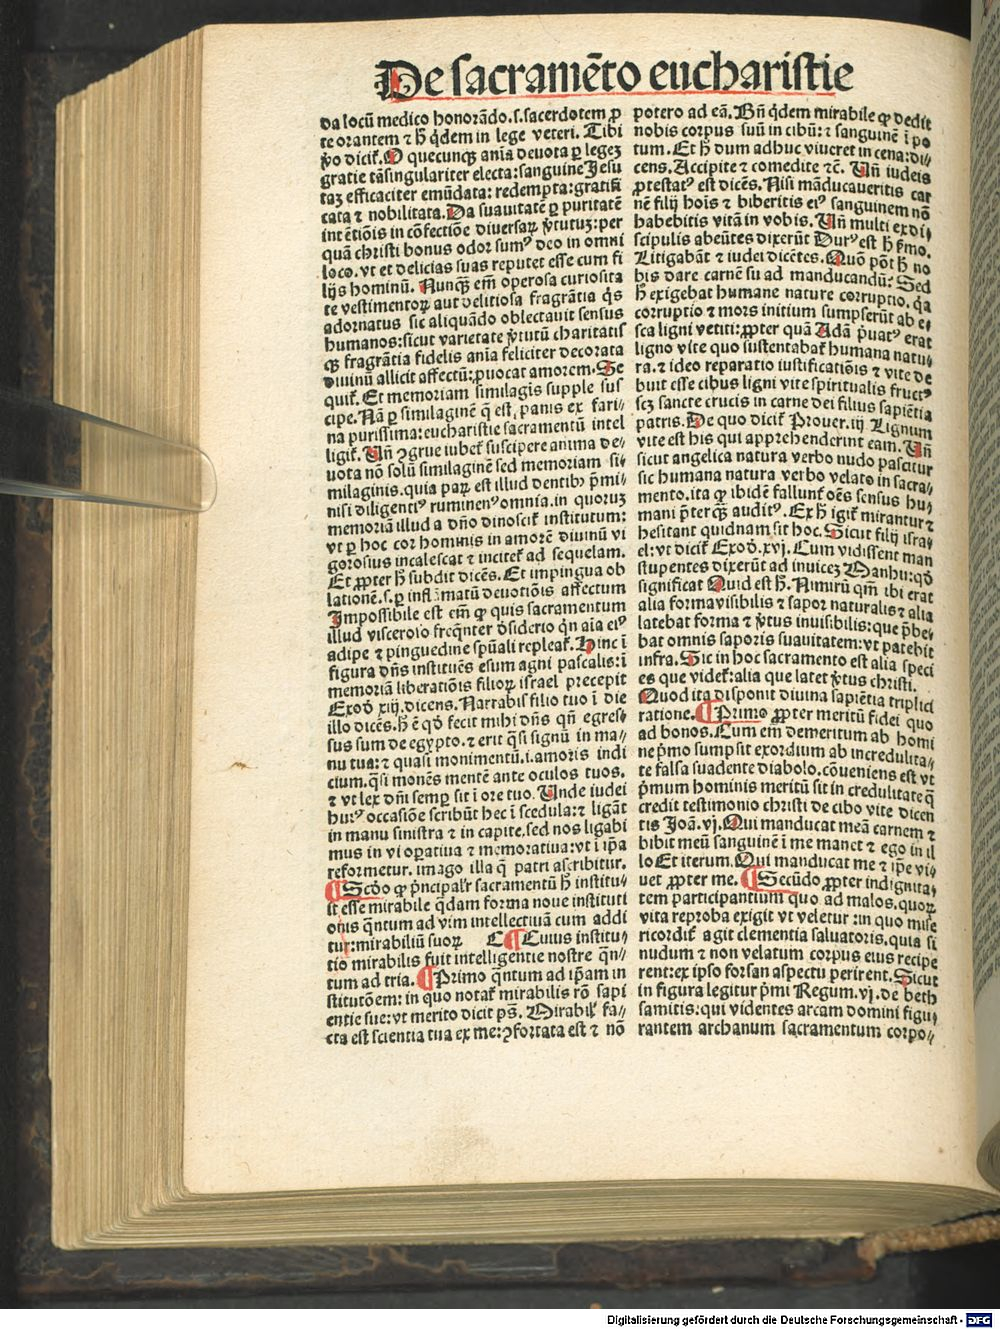 De sacramēto eucharistie
da locū medico honorādo.s.sacerdotem ꝓ
te orantem ⁊ h̄ q̄dem in lege veteri. Tibi
ꝟo dicit᷑.O quecunqꝫ aīa deuota ꝑ legeꝫ
gratie tā singulariter electa:sanguine Jesu
taꝫ efficaciter emūdata: redempta:gratifi
cata ⁊ nobilitata.Da suauitatē ꝑ puritatē
intētiōis in cōfectiōe diuersaꝝ ꝟtutuꝫ:per
quā christi bonus odor sumꝰ deo in omni
loco.vt et delicias suas reputet esse cum fi
lijs hominū. Nunqꝫ em̄ operosa curiosita
te vestimentoꝝ aut delitiosa fragrātia q̄s
adornatus sic aliquādo oblectauit sensus
humanos:sicut varietate ꝟtutū charitatis
qꝫ fragrātia fidelis aīa feliciter decorata
diuinū allicit affectū:ꝓuocat amorem.Se
quit᷑. Et memoriam similagis supple sus
cipe.Nā ꝑ similaginē q̄ est panis ex fari⸗
na purissima:eucharistie sacramentū intel
ligit᷑.Un̄ ꝯgrue iubet᷑ suscipere anima de⸗
uota nō solū similaginē sed memoriam si⸗
milaginis.quia paꝝ est illud dentibꝰ p̄mi⸗
nisi diligentiꝰ ruminenꝰ omnia.in quoruꝫ
memoriā illud a dn̄o dinoscit᷑ institutum:
vt ꝑ hoc cor hominis in amorē diuinū vi
gorosius incalescat ⁊ incitet᷑ ad sequelam.
Et ꝓpter h̄ subdit dicēs.Et impingua ob
lationē.s.ꝑ inflāmatū deuotiōis affectum
Impossibile est em̄ ꝙ quis sacramentum
illud viscerose freq̄nter d̄siderio q̄n aīa eiꝰ
adipe ⁊ pinguedine spūali repleat᷑.Hinc ī
figura dn̄s instituēs esum agni pascalis:ī
memoriā liberatiōis filioꝝ israel precepit
Exod̄ xiij.dicens.Narrabis filio tuo ī die
illo dicēs.h̄ ē qd̄ fecit mihi dn̄s qn̄ egres⸗
sus sum de egypto.⁊ erit q̄si signū in ma⸗
nu tua:⁊ quasi monimentū.i.amoris indi
cium.q̄si monēs mentē ante oculos tuos.
⁊ vt lex dn̄i semꝑ sit ī ore tuo.Unde iudei
huiꝰ occasiōe scribūt hec ī scedula:⁊ ligāt
in manu sinistra ⁊ in capite.sed nos ligabi
mus in vi oꝑatiua ⁊ memoratiua:vt ī ip̄a
reformetur.imago illa q̄ patri ascribitur.
¶Scd̄o ꝙ p̄ncipalr̄ sacramentū h̄ institu⸗
it esse mirabile q̄dam forma noue instituti
onis q̄ntum ad vim intellectiuā cum addi
tur:mirabiliū suoꝝ C¶Cuius institu⸗
tio mirabilis fuit intelligentie nostre q̄n⸗
tum ad tria. ¶Primo q̄ntum ad ip̄am in
stitutōem: in quo notat᷑ mirabilis rō sapi
entie sue:vt merito dicit ps̄. Mirabil᷑ fa⸗
cta est scientia tua ex me:ꝯfortata est ⁊ nō
potero ad eā.Bn̄ q̄dem mirabile ꝙ dedit
nobis corpus suū in cibū:⁊ sanguinē ī po
tum.Et h̄ dum adhuc viueret in cena:di⸗
cens.Accipite ⁊ comedite ⁊c̄. Un̄ iudeis
ꝓtestatꝰ est dicēs.Nisi māducaueritis car
nē filij hoīs ⁊ biberitis eiꝰ sanguinem nō
habebitis vitā in vobis.Un̄ multi ex di⸗
scipulis abeūtes dixerūt Durꝰ est h̄ ẜmo.
Litigabāt ⁊ iudei dicētes.Quō pōt h̄ no
bis dare carnē suā ad manducandū: Sed
h̄ exigebat humane nature corruptio.q̄a
corruptio ⁊ mors initium sumpserūt ab e⸗
sca ligni vetiti:ꝓpter quā Adā p̄uatꝰ erat
ligno vite quo sustentabat᷑ humana natu⸗
ra.⁊ ideo reparatio iustificatiōis ⁊ vite de
buit esse cibus ligni vite spiritualis fructꝰ
scꝫ sancte crucis in carne dei filius sapiētia
patris.De quo dicit᷑ Prouer.iij Lignum
vite est his qui apprehenderint eam. Un̄
sicut angelica natura verbo nudo pascitur
sic humana natura verbo velato in sacra⸗
mento.ita ꝙ ibidē fallunt᷑ oēs sensus hu⸗
mani p̄terqꝫ auditꝰ.Ex h̄ igit᷑ mirantur ⁊
hesitant quidnam sit hoc. Sicut filij isra⸗
el:vt dicit᷑ Exod̄.xvj. Cum vidissent man
stupentes dixerūt ad inuiceꝫ Manhu:qd̄
significat Quid est h̄. Nimirū qm̄ ibi erat
alia forma visibilis ⁊ sapor naturalis ⁊ alia
latebat forma ⁊ ꝟtus inuisibilis:que p̄be⸗
bat omnis saporis suauitatem:vt patebit
infra.Sic in hoc sacramento est alia speci
es que videt᷑:alia que latet ꝟtus christi.
Quod ita disponit diuina sapiētia triplici
ratione.¶Primo ꝓpter meritū fidei quo
ad bonos.Cum em̄ demeritum ab homi
ne p̄mo sumpsit exordium ab incredulita⸗
te falsa suadente diabolo.cōueniens est vt
p̄mum hominis meritū sit in credulitate q̄
credit testimonio christi de cibo vite dicen
tis Joā.vj.Qui manducat meā carnem ⁊
bibit meū sanguinē ī me manet ⁊ ego in il
lo Et iterum.Qui manducat me ⁊ ip̄e vi⸗
uet ꝓpter me. ¶Secūdo ꝓpter indignita⸗
tem participantium quo ad malos.quoꝝ
vita reproba exigit vt veletur:in quo mise
ricordit᷑ agit clementia saluatoris.quia si
nudum ⁊ non velatum corpus eius recipe
rent:ex ipso forsan aspectu perirent.Sicut
in figura legitur p̄mi Regum.vj.de beth
samitis:qui videntes arcam domini figu⸗
rantem archanum sacramentum corpo⸗
Digitalisierung gefördert durch die Deutsche Forschungsgemeinschaft - DFG